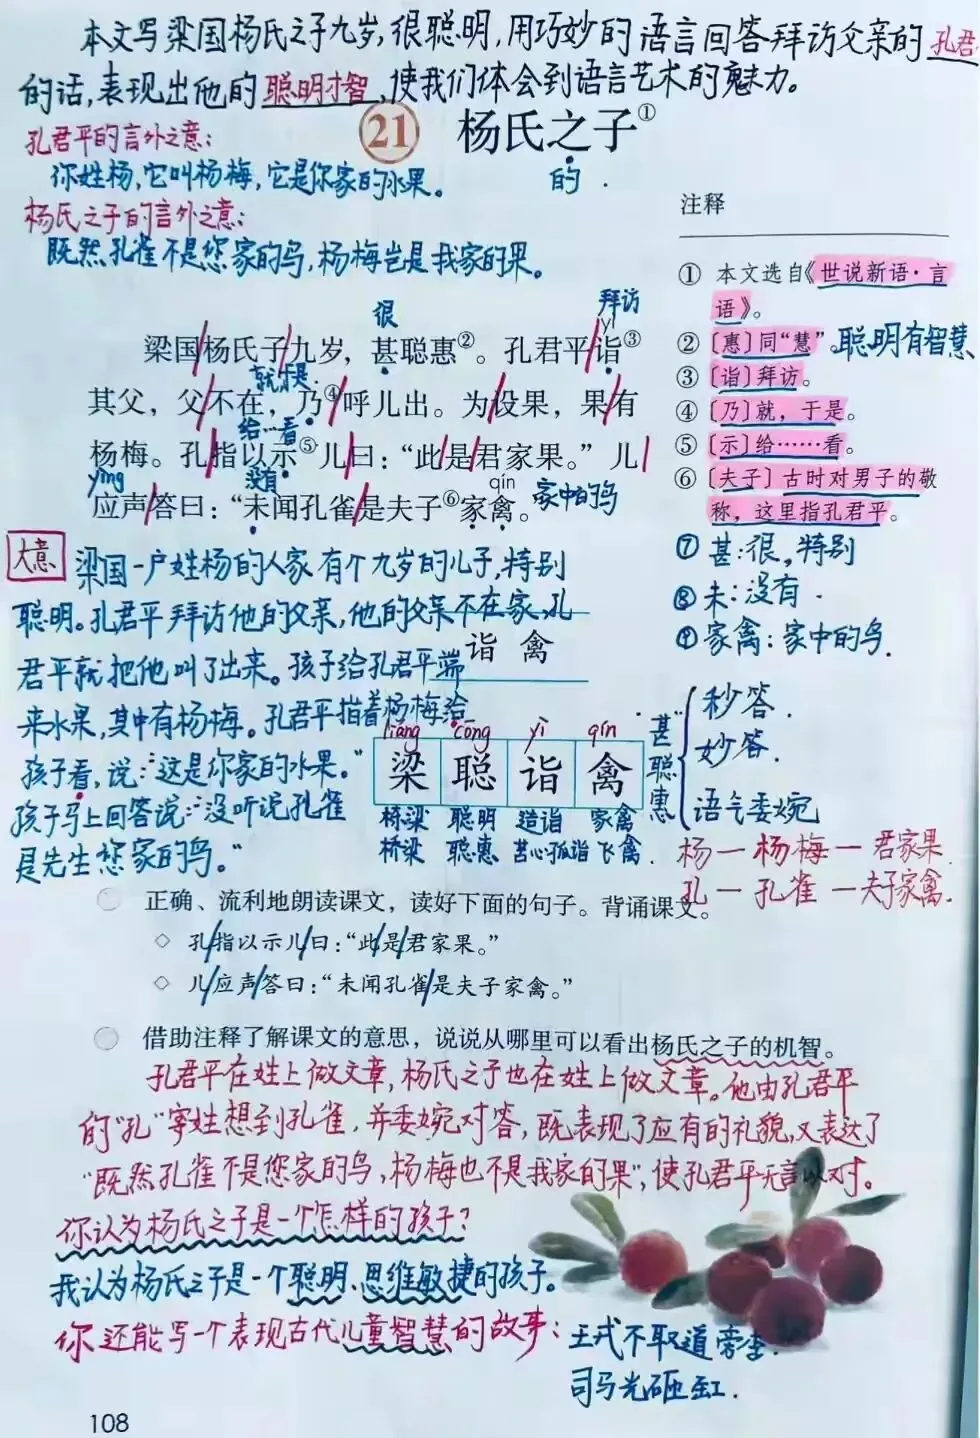 本文写梁国杨氏之子九岁,很聪明,用巧妙的语言回答拜访父亲的孔君
的话,表现出他的聪明才智,使我们体会到语言艺术的魅力。
21 杨氏之子①
的.
孔君平的言外之意:
你姓杨,它叫杨梅,它是你家的水果。
杨氏之子的言外之意:
既然孔雀不是您家的鸟,杨梅岂是我家的果。
很 拜访
yì
梁国/杨氏子/九岁,甚聪惠②。孔君平/诣③
就,于是.
其父,父/不在,乃④/呼儿出。为/设果,果/有
给…看
杨梅。孔/指以示⑤儿/曰:“此/是/君家果。”儿/
yīng 没有 qín
应声/答曰:“未闻孔雀/是夫子⑥家禽。 家中的鸟
注释
① 本文选自《世说新语·言
语》。
② 〔惠〕同“慧”。聪明有智慧
③ 〔诣〕拜访。
④ 〔乃〕就,于是。
⑤ 〔示〕给……看。
⑥ 〔夫子〕古时对男子的敬
称,这里指孔君平。
⑦ 甚:很,特别
⑧ 未:没有.
⑨ 家禽:家中的鸟.
大意
梁国一户姓杨的人家有个九岁的儿子,特别
聪明。孔君平拜访他的父亲,他的父亲不在家,孔
君平就把他叫了出来。孩子给孔君平端
来水果,其中有杨梅。孔君平指着杨梅给
孩子看,说:“这是你家的水果。”
孩子马上回答说:“没听说孔雀
是先生您家的鸟。”
诣 禽
liáng cōng yì qín
梁 聪 诣 禽
桥梁 聪明 造诣 家禽
桥梁 聪惠 苦心孤诣 飞禽.
甚聪惠
秒答.
妙答.
语气委婉
杨—杨梅—君家果.
孔—孔雀—夫子家禽.
正确、流利地朗读课文,读好下面的句子。背诵课文。
◇ 孔/指以示儿/曰:“此/是/君家果。”
◇ 儿/应声/答曰:“未闻孔雀/是夫子家禽。”
借助注释了解课文的意思,说说从哪里可以看出杨氏之子的机智。
孔君平在姓上做文章,杨氏之子也在姓上做文章。他由孔君平
的“孔”字姓想到孔雀,并委婉对答,既表现了应有的礼貌,又表达了
“既然孔雀不是您家的鸟,杨梅也不是我家的果”,使孔君平无言以对。
你认为杨氏之子是一个怎样的孩子?
我认为杨氏之子是一个聪明、思维敏捷的孩子。
你还能写一个表现古代儿童智慧的故事: 王戎不取道旁李.
司马光砸缸.
108